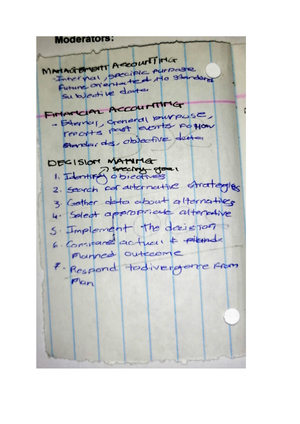 Moderators:
MANAGEMENT ACCOUNTING
- Internal, specific purpose
future orientated, No standard
subjective data
FINANCIAL ACCOUNTING
- External, general purpose,
reports past events follow
standards, objective data
DECISION MAKING
1. Identify objectives
2. Search for alternative strategies
3. Gather data about alternatives
4. Select appropriate alternative
5. Implement the decision
6. Compare actual &
Planned outcome
7. Respond to divergence from
Plan